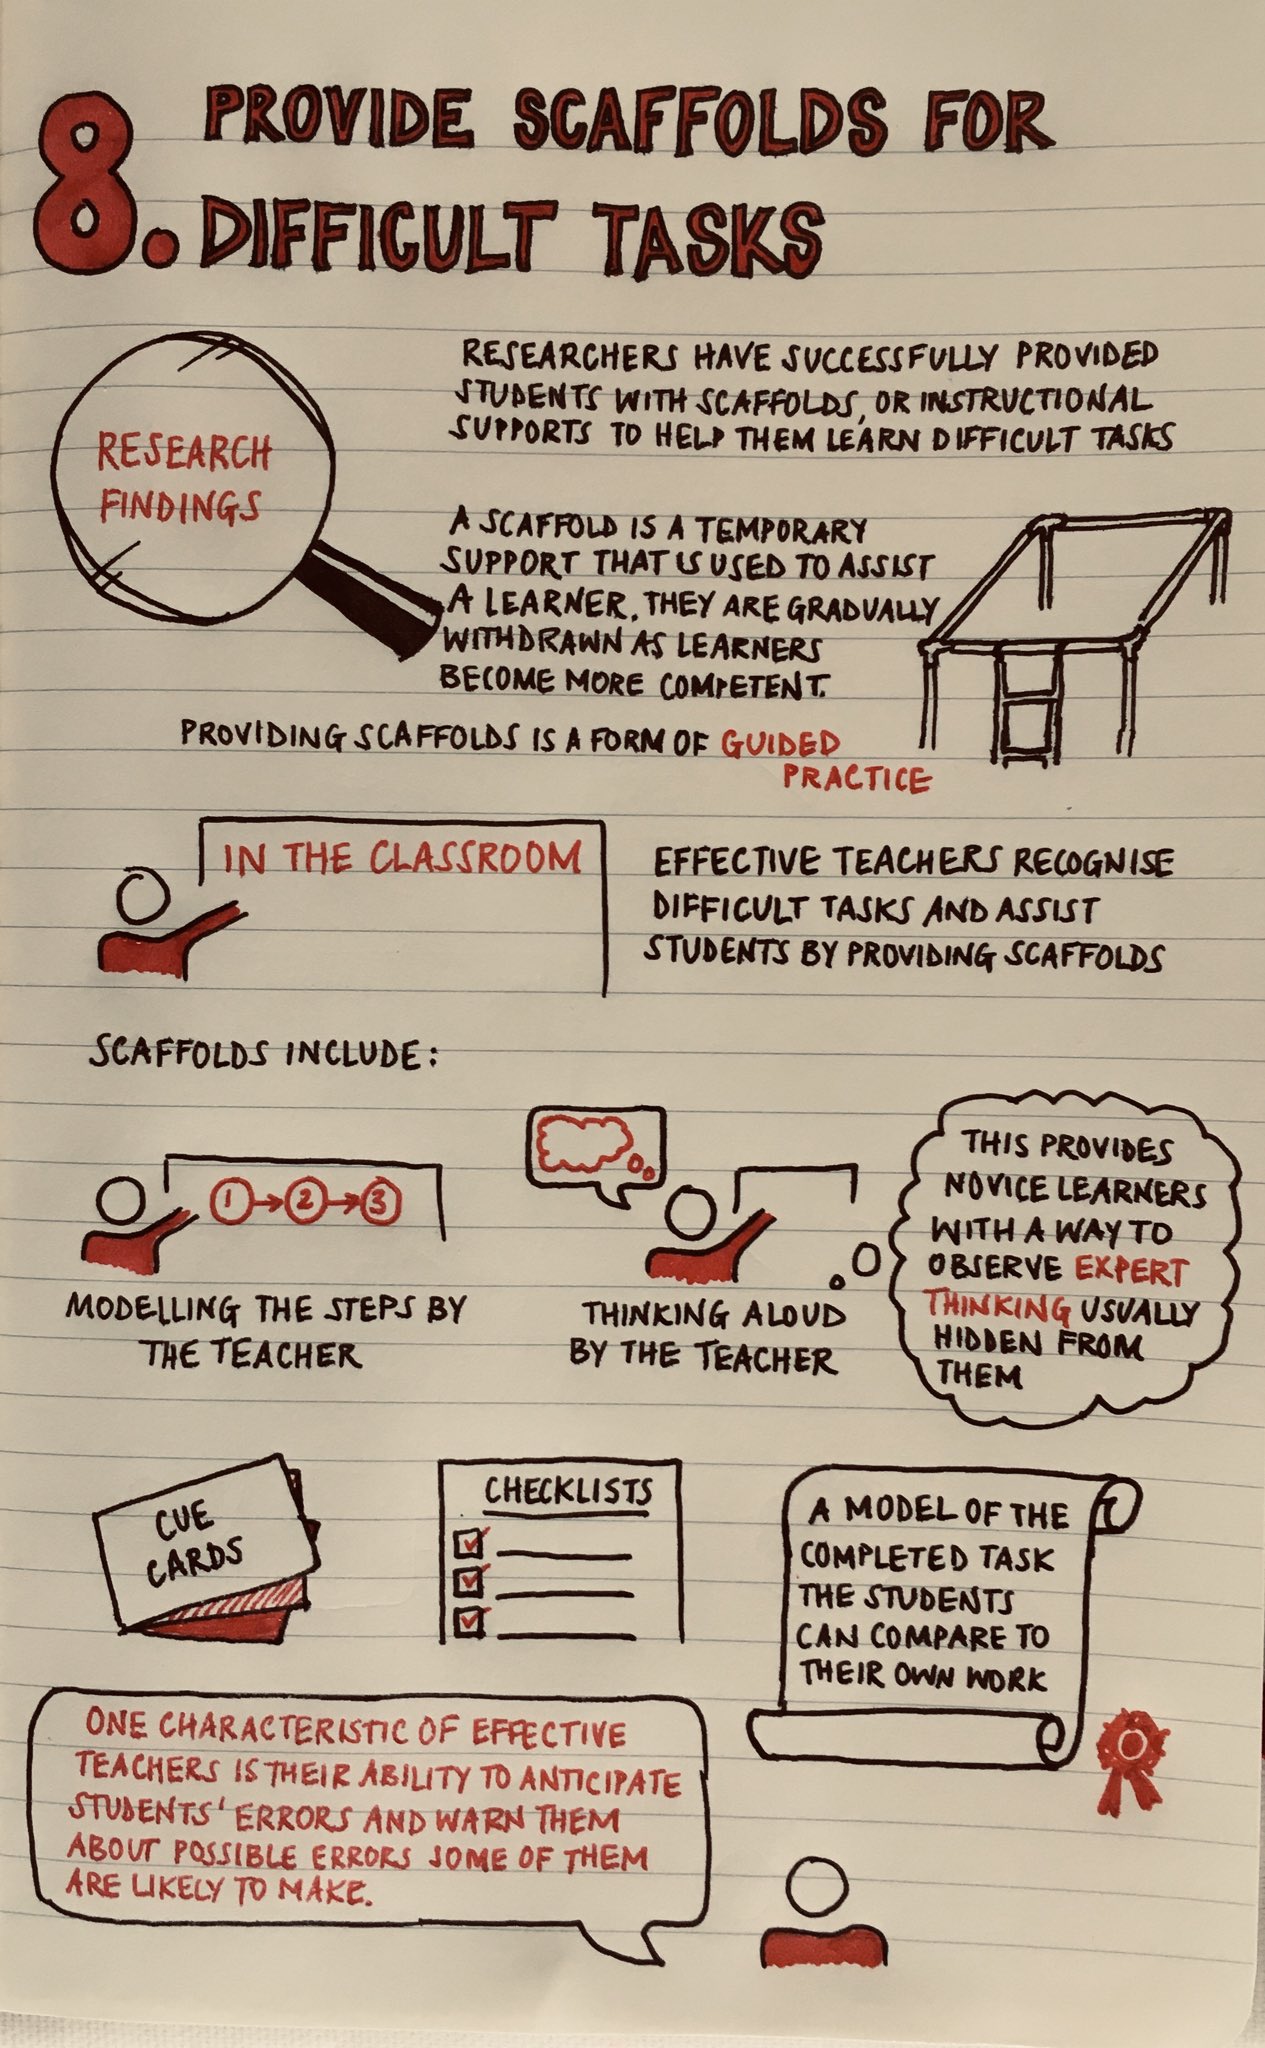 8. PROVIDE SCAFFOLDS FOR
DIFFICULT TASKS
RESEARCH
FINDINGS
RESEARCHERS HAVE SUCCESSFULLY PROVIDED
STUDENTS WITH SCAFFOLDS, OR INSTRUCTIONAL
SUPPORTS TO HELP THEM LEARN DIFFICULT TASKS
A SCAFFOLD IS A TEMPORARY
SUPPORT THAT IS USED TO ASSIST
A LEARNER. THEY ARE GRADUALLY
WITHDRAWN AS LEARNERS
BECOME MORE COMPETENT.
PROVIDING SCAFFOLDS IS A FORM OF GUIDED
PRACTICE
IN THE CLASSROOM
EFFECTIVE TEACHERS RECOGNISE
DIFFICULT TASKS AND ASSIST
STUDENTS BY PROVIDING SCAFFOLDS
SCAFFOLDS INCLUDE:
1 → 2 → 3
MODELLING THE STEPS BY
THE TEACHER
THINKING ALOUD
BY THE TEACHER
THIS PROVIDES
NOVICE LEARNERS
WITH A WAY TO
OBSERVE EXPERT
THINKING USUALLY
HIDDEN FROM
THEM
CUE
CARDS
CHECKLISTS
A MODEL OF THE
COMPLETED TASK
THE STUDENTS
CAN COMPARE TO
THEIR OWN WORK
ONE CHARACTERISTIC OF EFFECTIVE
TEACHERS IS THEIR ABILITY TO ANTICIPATE
STUDENTS' ERRORS AND WARN THEM
ABOUT POSSIBLE ERRORS SOME OF THEM
ARE LIKELY TO MAKE.